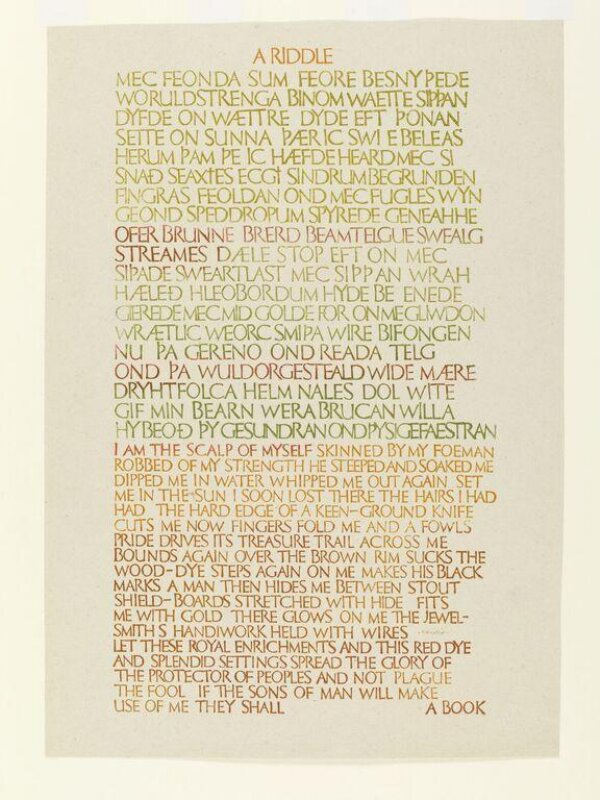 A RIDDLE
MEC FEONDA SUM FEORE BESNYÞEDE
WORULDSTRENGA BINOM WAETTE SIÞÞAN
DYFDE ON WÆTTRE DYDE EFT ÞONAN
SETTE ON SUNNA ÞÆR IC SWI E BELEAS
HERUM ÞAM ÞE IC HÆFDE HEARD MEC SI
SNAÐ SEAXTES ECGT SINDRUM BEGRUNDEN
FINGRAS FEOLDAN OND MEC FUGLES WYN
GEOND SPEDDROPUM SPYREDE GENEAHHE
OFER BRUNNE BRERD BEAMTELGUE SWEALG
STREAMES DÆLE STOP EFT ON MEC
SIÞADE SWEARTLAST MEC SIÞÞAN WRAH
HÆLEÐ HLEOBORDUM HYDE BE ENEDE
GIEREDE MEC MID GOLDE FOR ON ME GLIWDON
WRÆTLIC WEORC SMIÞA WIRE BIFONGEN
NU ÞA GERENO OND READA TELG
OND ÞA WULDORGESTEALD WIDE MÆRE
DRYHTFOLCA HELM NALES DOL WITE
GIF MIN BEARN WERA BRUCAN WILLA
HY BEOÐ ÞY GESUNDRAN OND ÞY SIGEFAESTRAN
I AM THE SCALP OF MYSELF SKINNED BY MY FOEMAN
ROBBED OF MY STRENGTH HE STEEPED AND SOAKED ME
DIPPED ME IN WATER WHIPPED ME OUT AGAIN SET
ME IN THE SUN I SOON LOST THERE THE HAIRS I HAD
HAD THE HARD EDGE OF A KEEN-GROUND KNIFE
CUTS ME NOW FINGERS FOLD ME AND A FOWLS
PRIDE DRIVES ITS TREASURE TRAIL ACROSS ME
BOUNDS AGAIN OVER THE BROWN RIM SUCKS THE
WOOD-DYE STEPS AGAIN ON ME MAKES HIS BLACK
MARKS A MAN THEN HIDES ME BETWEEN STOUT
SHIELD-BOARDS STRETCHED WITH HIDE FITS
ME WITH GOLD THERE GLOWS ON ME THE JEWEL-
SMITH S HANDIWORK HELD WITH WIRES
LET THESE ROYAL ENRICHMENTS AND THIS RED DYE
AND SPLENDID SETTINGS SPREAD THE GLORY OF
THE PROTECTOR OF PEOPLES AND NOT PLAGUE
THE FOOL IF THE SONS OF MAN WILL MAKE
USE OF ME THEY SHALL A BOOK